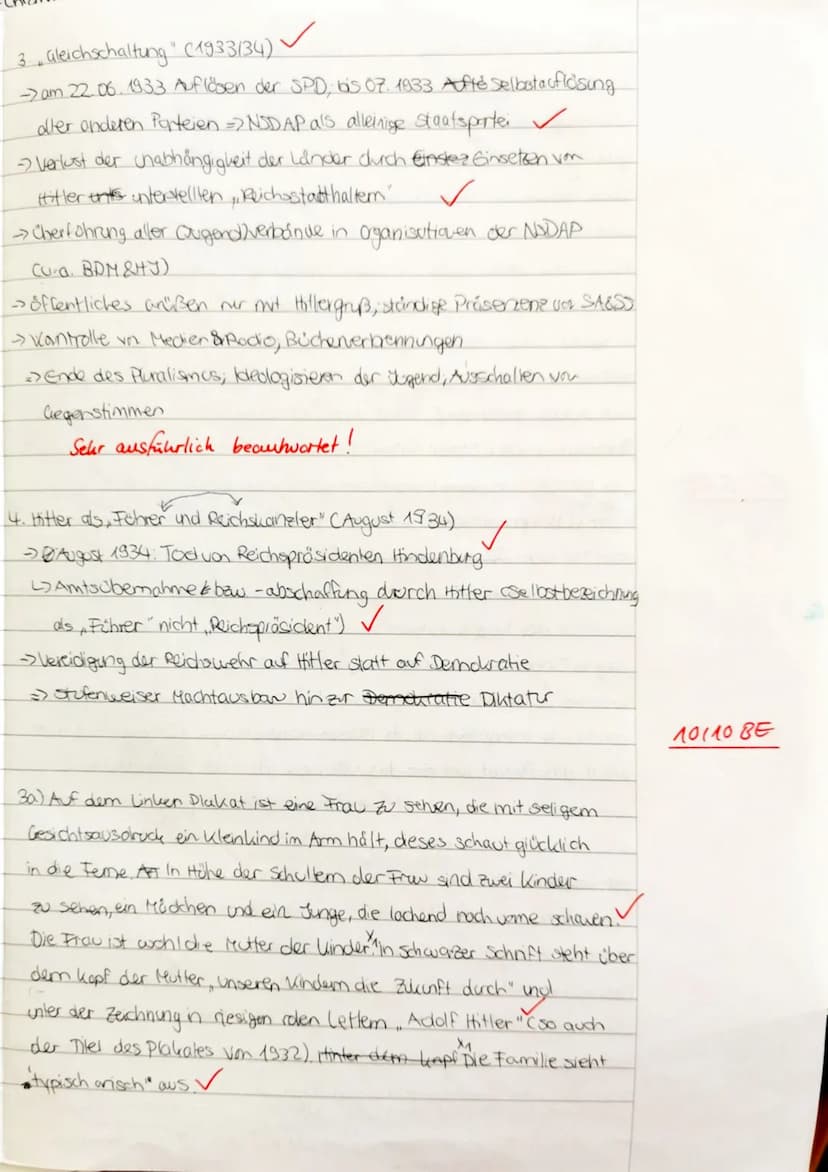 3. „Gleichschaltung" (1933/34) ✓
→ am 22.06.1933 Auflösen der SPD, bis 07.1933 Selbstauflösung
aller anderen Parteien => NSDAP als alleinige Staatspartei ✓
→ Verlust der Unabhängigkeit der Länder durch Einsetzen von
Hitler unterstellten „Reichsstatthaltern" ✓
→ Überführung aller (Jugend)verbände in Organisationen der NSDAP
(u.a. BDM & HJ)
→ öffentliches Grüßen nur mit Hitlergruß, ständige Präsenz von SA & SS
→ Kontrolle von Medien & Radio, Bücherverbrennungen
=> Ende des Pluralismus, Ideologisieren der Jugend, Ausschalten von
Gegenstimmen
Sehr ausführlich beantwortet!
4. Hitler als „Führer und Reichskanzler" (August 1934)
→ August 1934: Tod von Reichspräsidenten Hindenburg ✓
↳ Amtsübernahme bzw. -abschaffung durch Hitler (Selbstbezeichnung
als „Führer" nicht „Reichspräsident") ✓
→ Vereidigung der Reichswehr auf Hitler statt auf Demokratie
=> stufenweiser Machtausbau hin zur Demokratie Diktatur
10/10 BE
3a) Auf dem linken Plakat ist eine Frau zu sehen, die mit seligem
Gesichtsausdruck ein Kleinkind im Arm hält, dieses schaut glücklich
in die Ferne. In Höhe der Schultern der Frau sind zwei Kinder
zu sehen, ein Mädchen und ein Junge, die lachend nach vorne schauen. ✓
Die Frau ist wohl die Mutter der Kinder.*1 In schwarzer Schrift steht über
dem Kopf der Mutter „unseren Kindern die Zukunft durch" und
unter der Zeichnung in riesigen roten Lettern „Adolf Hitler" ✓ (so auch
der Titel des Plakates von 1932). Hinter dem Kopf *1 Die Familie sieht
„typisch arisch" aus. ✓